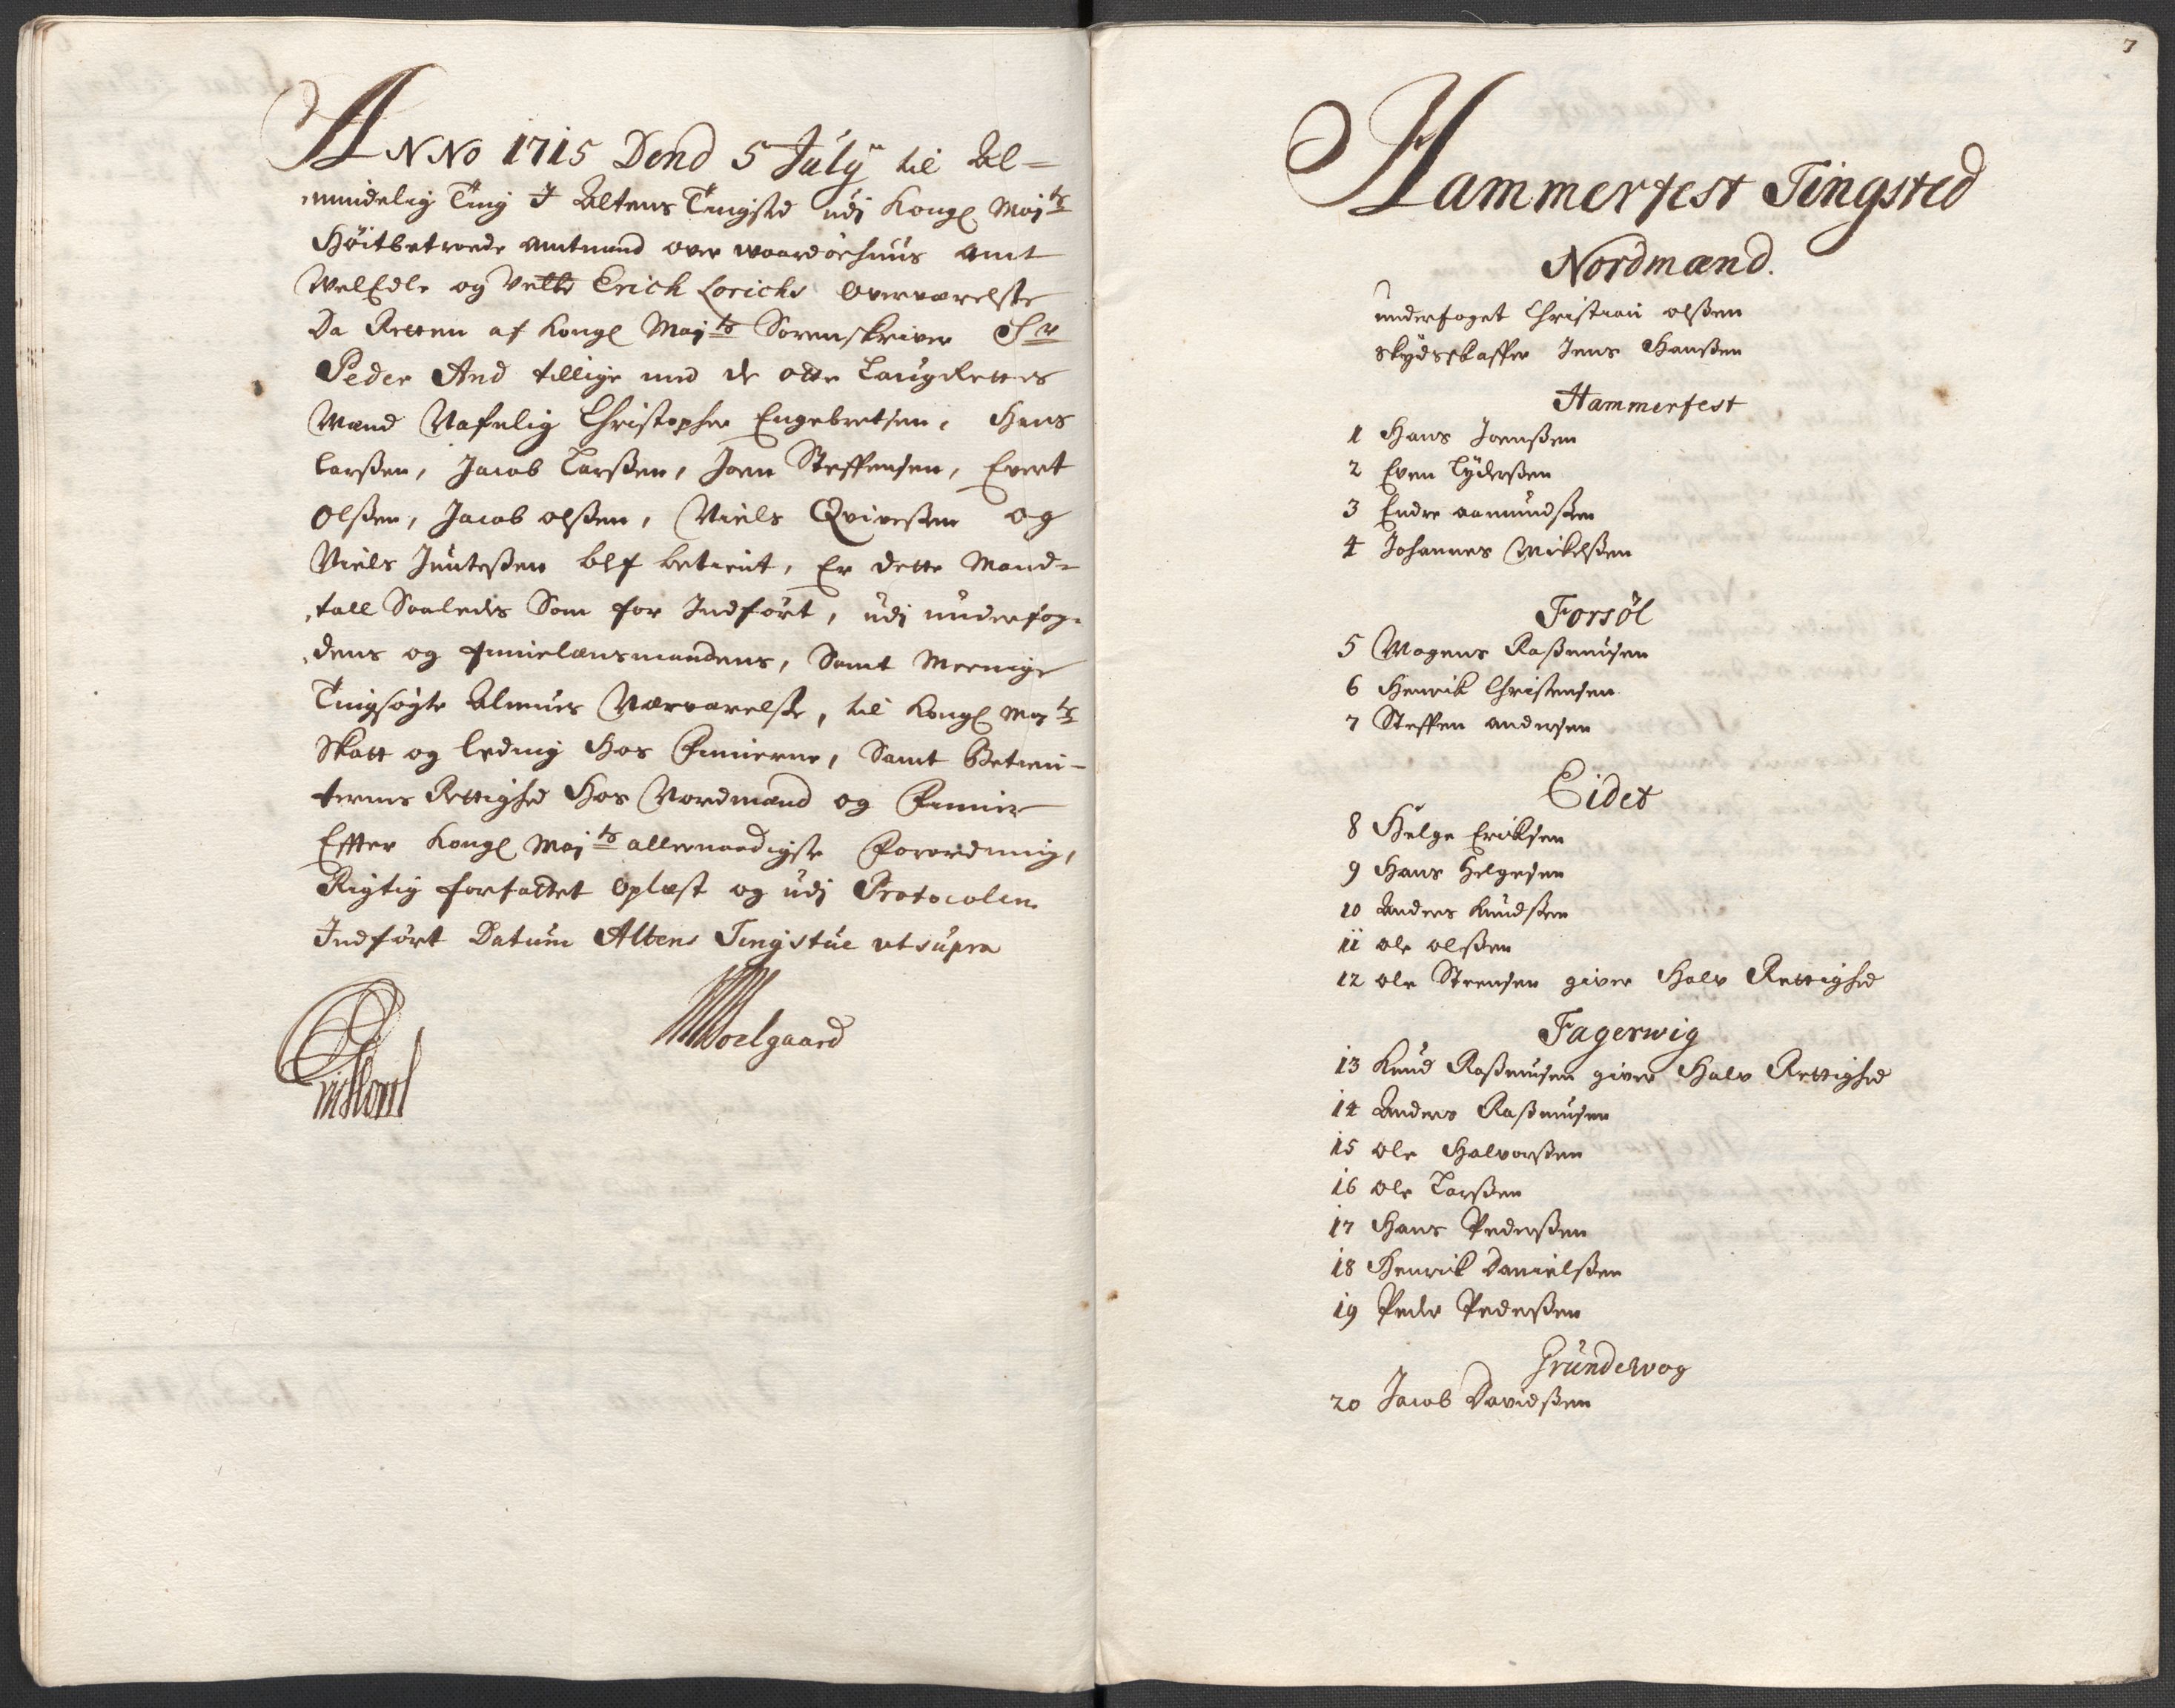 ANNo 1715 Dend 5 July til Al=
mindelig Ting I Altens Tingsted udj Kongl Majts
Höitbetroede Amtmand over Waardöehuus Amt
WelEdle og Erich Lorichs Overværelsse
Da Retten af Kongl Majts Sorenskriver Sr
Peder And tillige med de otte LaugRettes
Mænd Nafnlig Christopher Engebretsen, Hans
Larssen, Jacob Larssen, Joen Steffensen, Evert
Olssen, Jacob olssen, Niels Qvivessen og
Niels Juntessen blef betient, Er dette Mand=
tall Saaledes Som for Indfört, udj underfog=
dens og finnelænsmandens, Samt Meenige
Tingsögte Almues Nærværelsse, til Kongl Majts
Skatt og leding Hos Finnerne, Samt Betien=
ternes Rettighed Hos Nordmænd og Finner
Effter Kongl Majts allernaadigste Forordning,
Rigtig forfattet Oplæst og udj Protocolen
Indfört Datum Altens Tingstue ut supra
Woelgaard
7
Hammerfest Tingsted
Nordmænd.
underfoget Christian olssen
skydsskaffer Jens Hanssen
Hammerfest
1 Hans Joenssen
2 Even Lyderssen
3 Endre aamundssen
4 Johannes Mickelssen
Forsöl
5 Mogens Rassmusen
6 Henrik Christensen
7 Steffen andersen
Eidet
8 Helge Ericksen
9 Hans Helgesen
10 Anders Knudssen
11 ole olssen
12 ole Steensen giver Halv Rettighed
Fagerwig
13 Knud Rassmusen giver Halv Rettighed
14 Anders Rassmusen
15 ole Halvorssen
16 ole Larssen
17 Hans Pederssen
18 Henrik Danielssen
19 Peder Pederssen
Gründewog
20 Jacob Davidssen